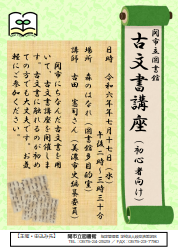 関市立図書館
古文書講座
（初心者向け）
日時　令和六年七月十七日（水）
午後二時～三時三十分
場所　森のはなれ（図書館多目的室）
講師　古田　憲司さん（美濃市史編集委員）
関市にちなんだ古文書を用
いて、古文書講座を開催しま
す。古文書に触れるのが初め
ての方でも大丈夫です。お気
軽にご参加ください。
【主催・申込み先】
関市立図書館
TEL：0575-24-2529
FAX：0575-23-7780